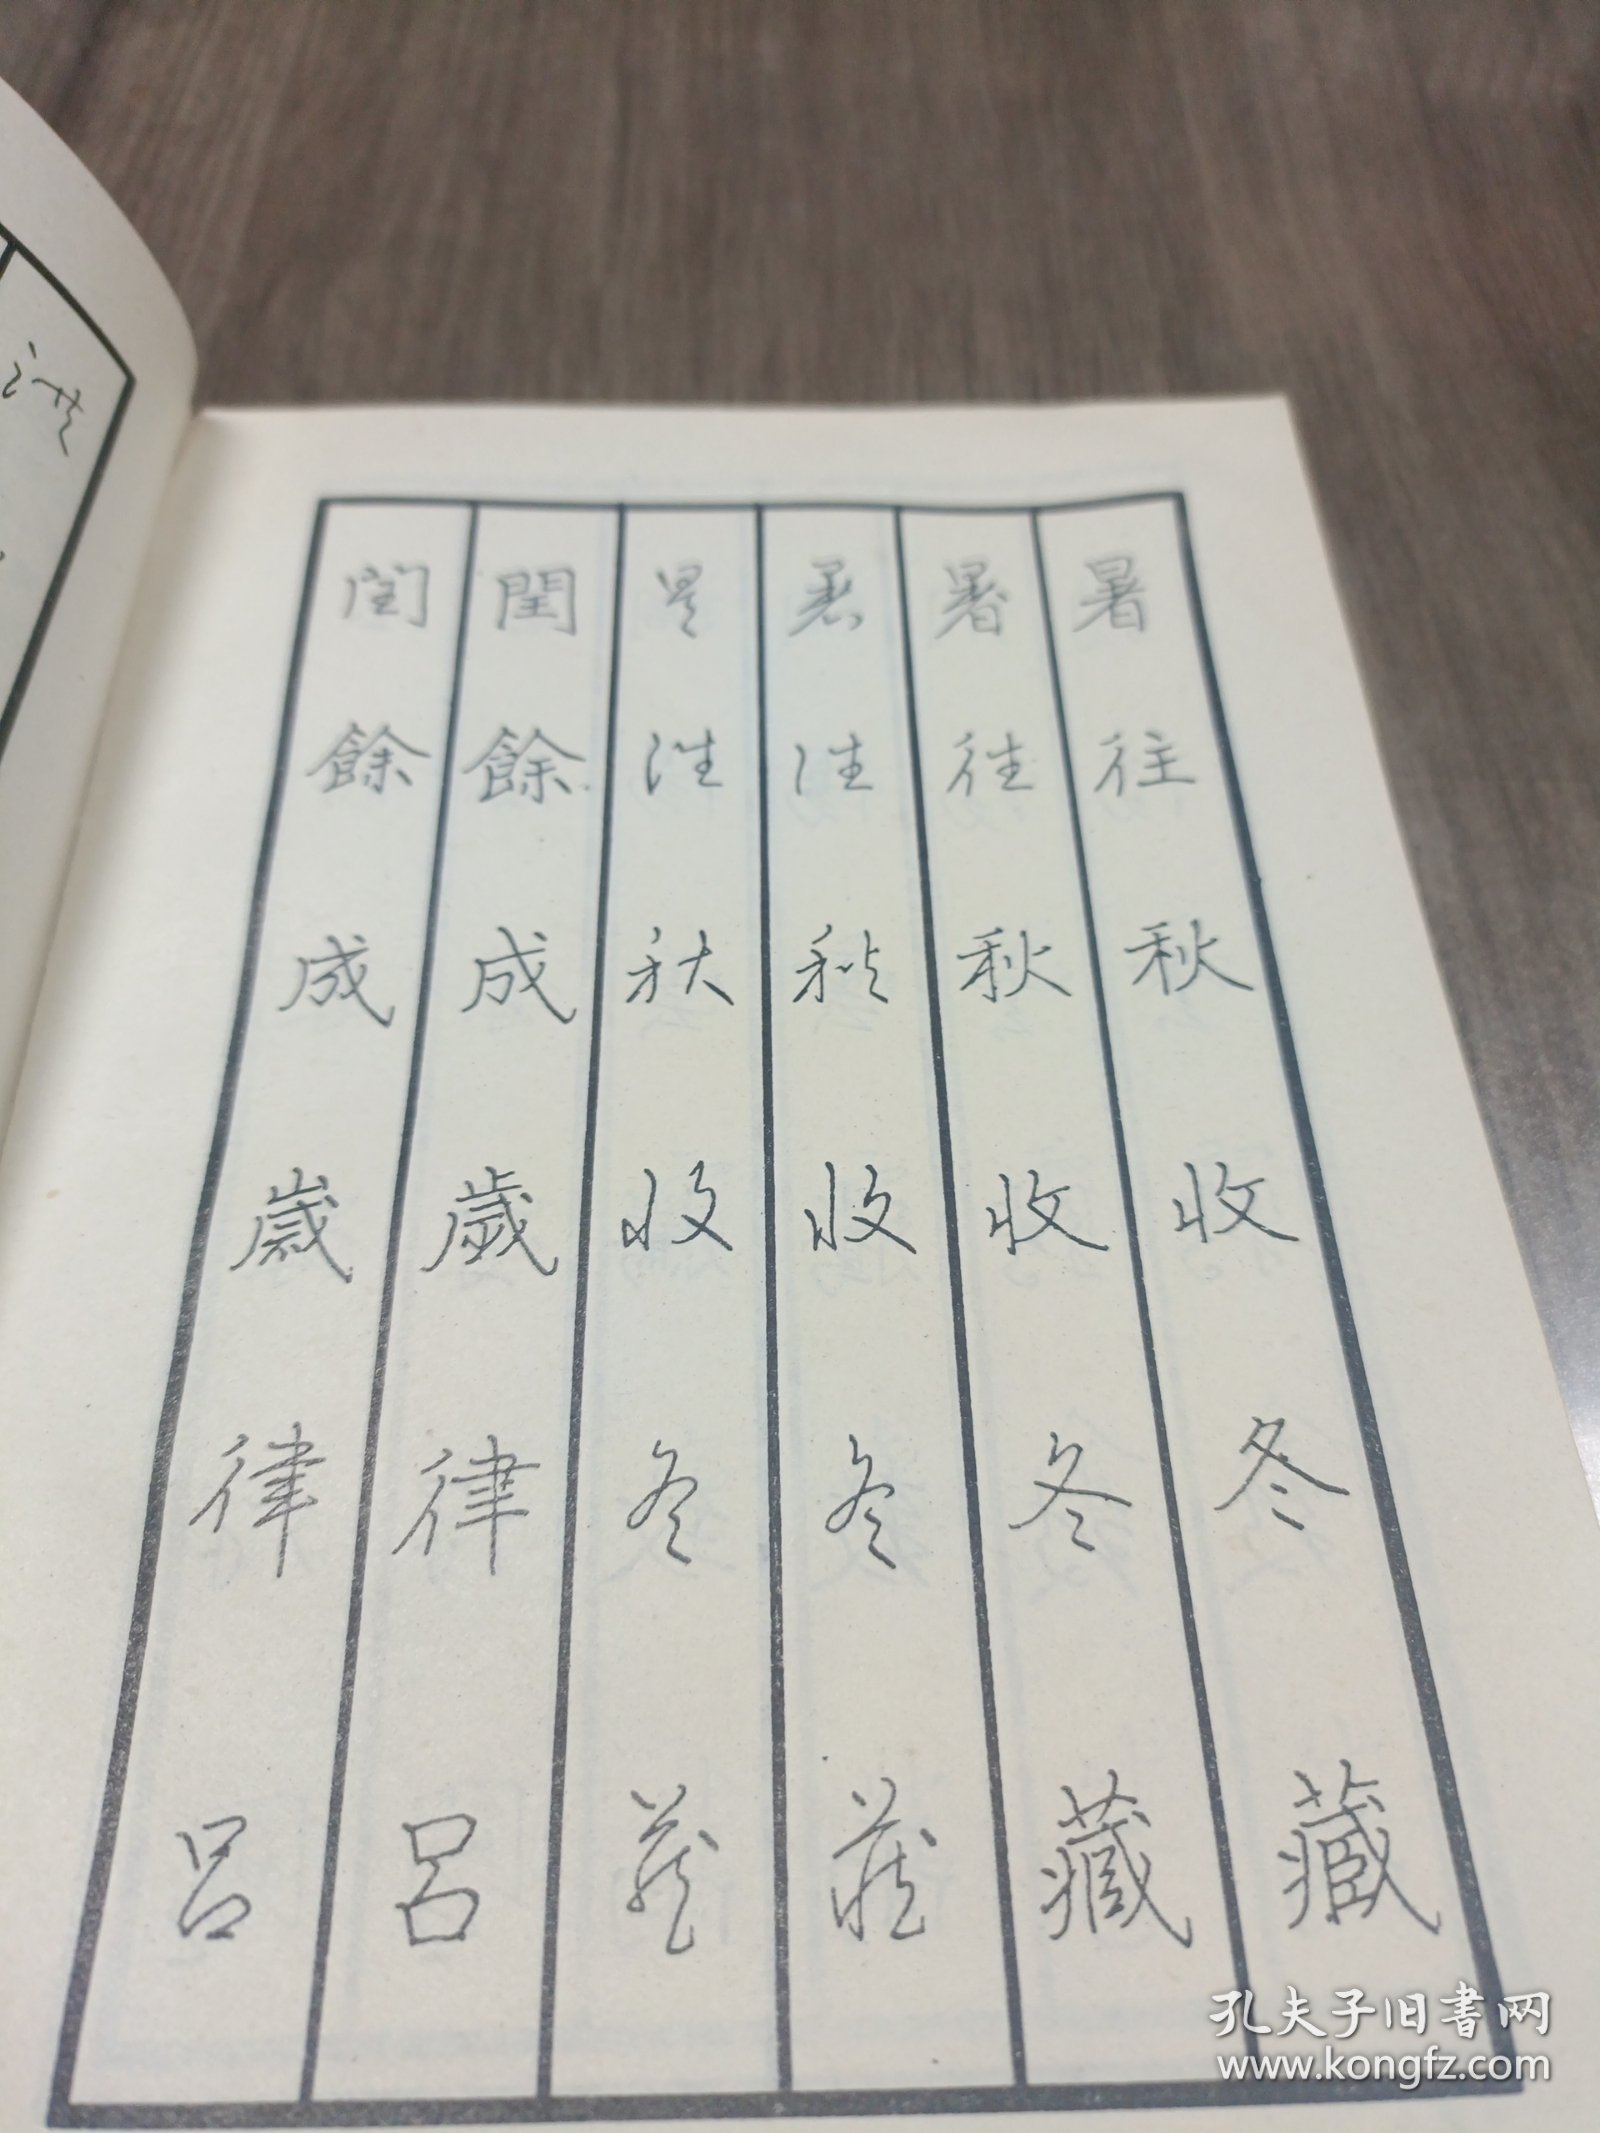 暑往秋收冬藏
暑往秋收冬藏
暑往秋收冬藏
暑往秋收冬藏
閏餘成歲律呂
閏餘成歲律呂
孔夫子旧书网
www.kongfz.com